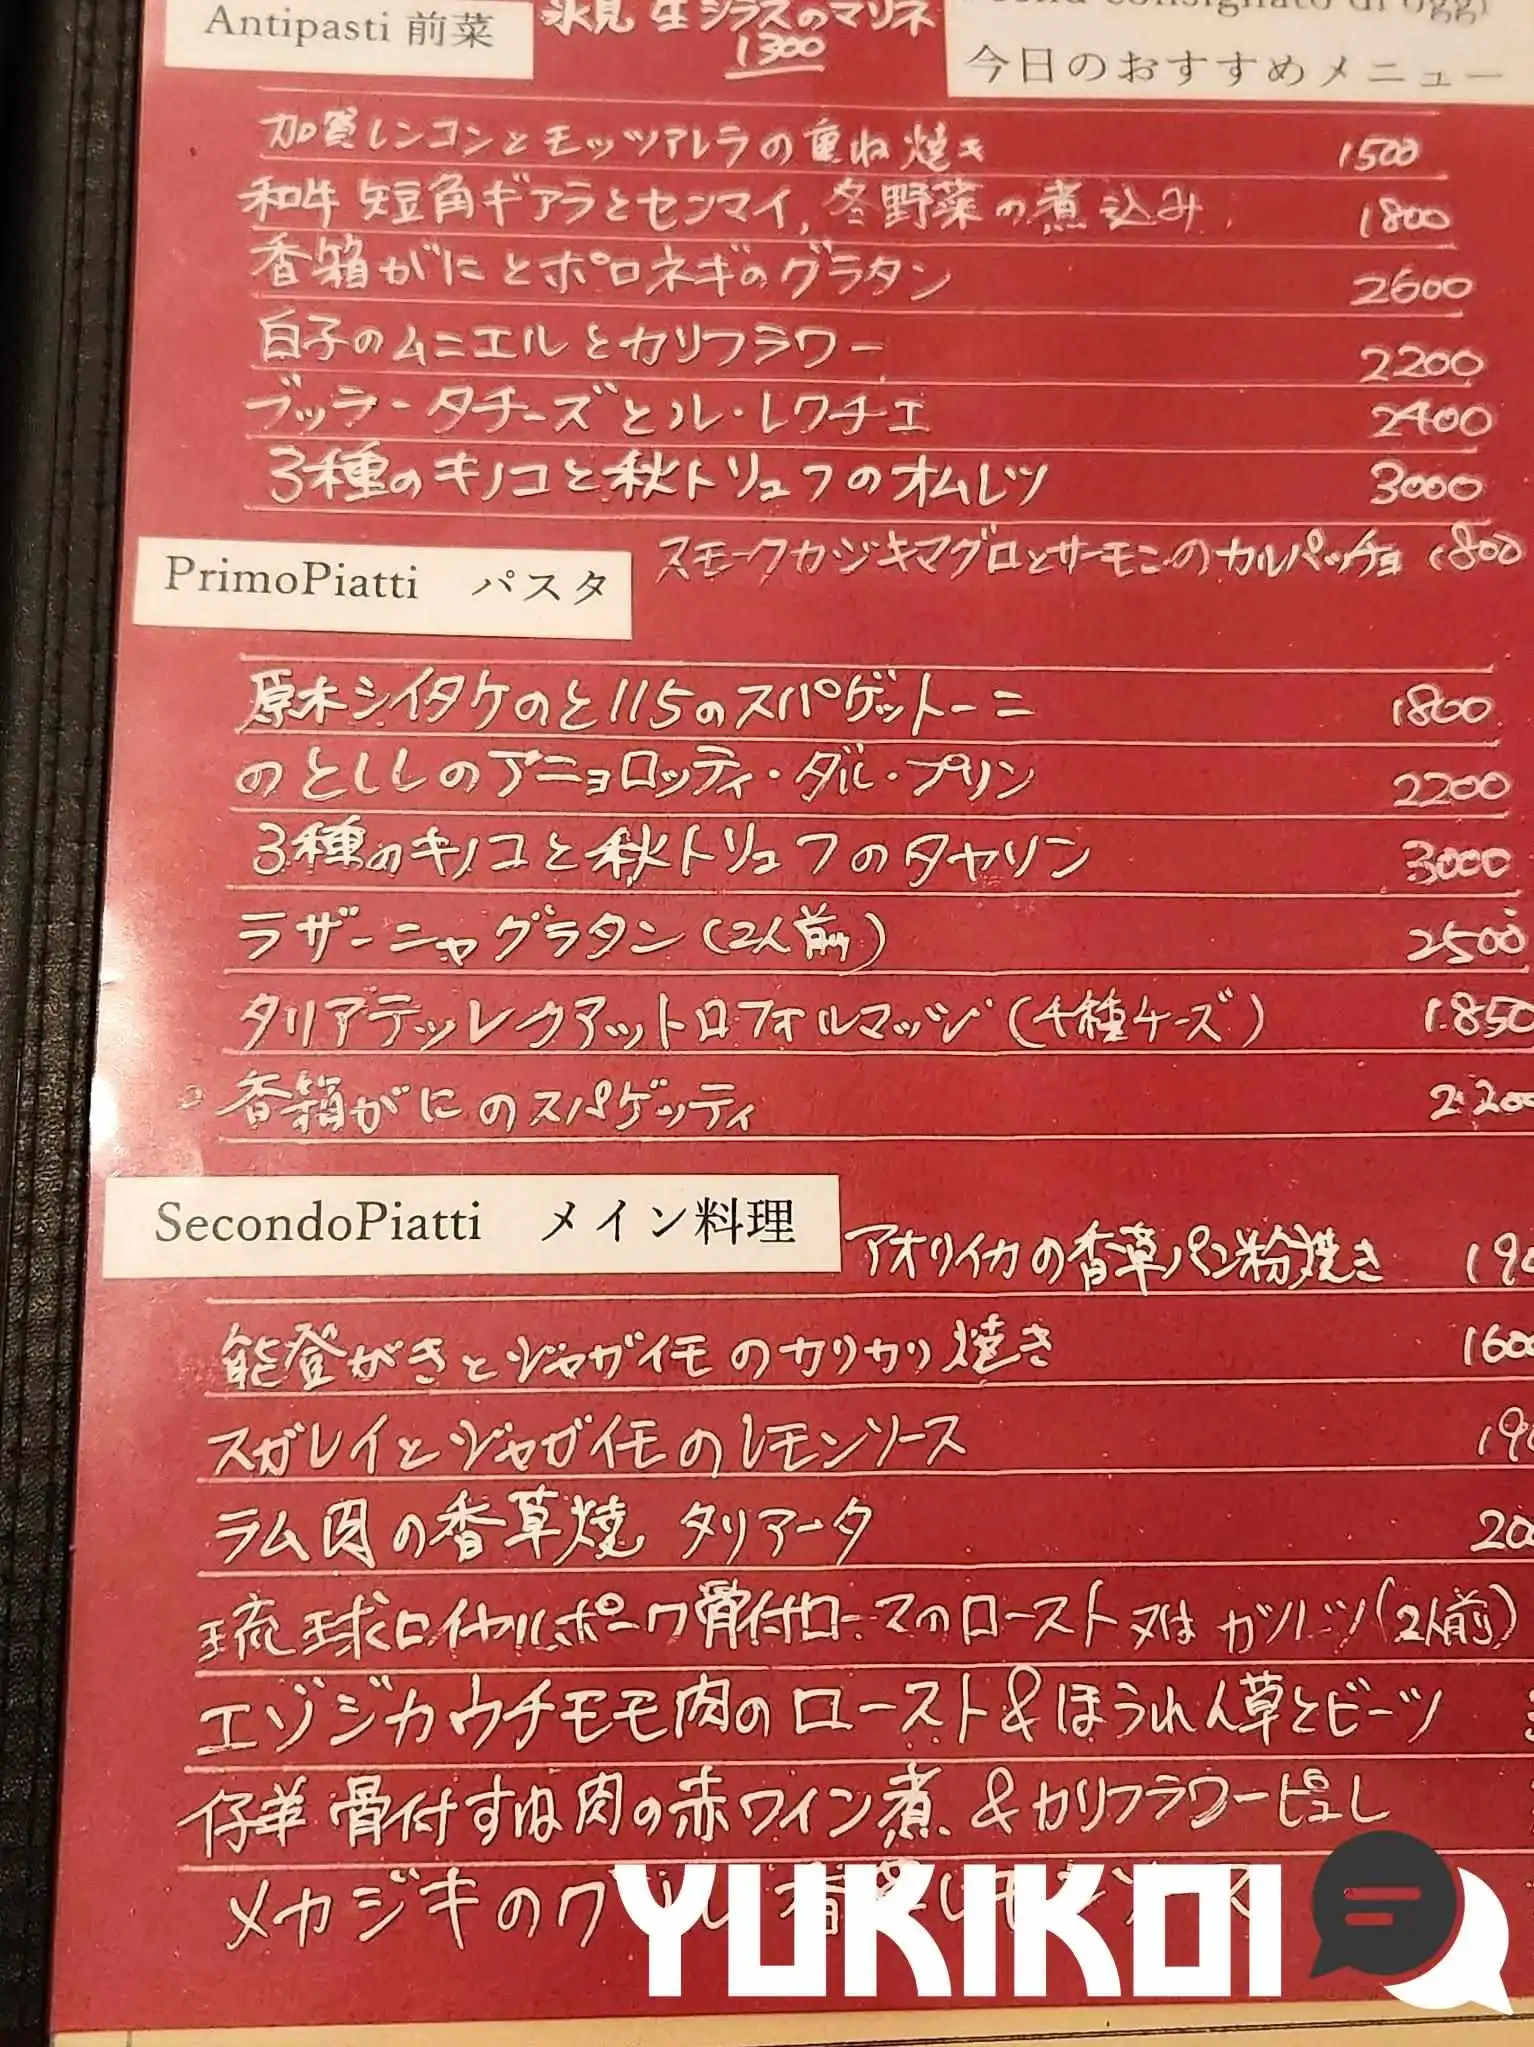 Antipasti 前菜
氷見 生シラスのマリネ
1300
consignato di oggi
今日のおすすめメニュー
加賀レンコンとモッツァレラの重ね焼き 1500
和牛 短角ギアラとセンマイ, 冬野菜の煮込み 1800
香箱がにとポロネギのグラタン 2600
白子のムニエルとカリフラワー 2200
ブッラータチーズとル・レクチエ 2400
3種のキノコと秋トリュフのオムレツ 3000
スモークカジキマグロとサーモンのカルパッチョ 1800
PrimoPiatti パスタ
原木シイタケのと115のスパゲットーニ 1800
のとししのアニョロッティ・ダル・プリン 2200
3種のキノコと秋トリュフのタヤリン 3000
ラザーニャグラタン(2人前) 2500
タリアテッレクアットロフォルマッジ(4種チーズ) 1.850
香箱がにのスパゲッティ 2.200
SecondoPiatti メイン料理
アオリイカの香草パン粉焼き 190
能登がきとジャガイモのカリカリ焼き 1600
スガレイとジャガイモのレモンソース 190
ラム肉の香草焼 タリアータ 200
琉球ロイヤルポーク骨付ロースのロースト又はカツレツ(2人前)
エゾジカウチモモ肉のロースト&ほうれん草とビーツ
仔羊骨付すね肉の赤ワイン煮 &カリフラワーピュレ
メカジキのグリル香草レモンソース
YUKIKOI